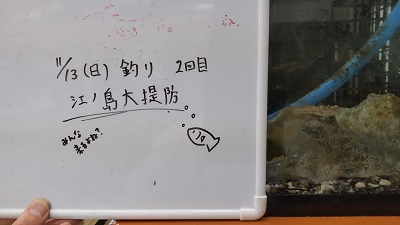 11/13(日) 釣り 2回目
江ノ島大堤防
みんな
来るよね?